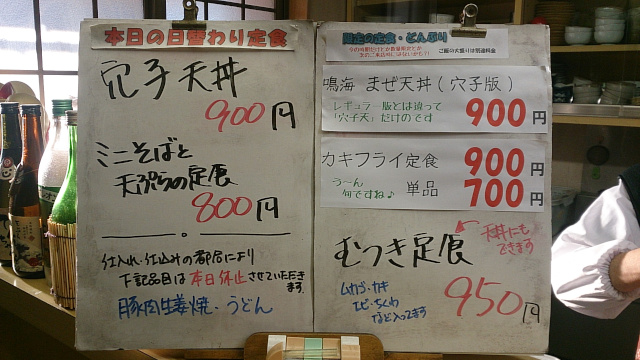 本日の日替わり定食
穴子天丼
900円
ミニそばと
天ぷらの定食
800円
仕入れ・仕込みの都合により
下記品目は本日休止させていただき
ます。
豚肉生姜焼・うどん
限定の定食・どんぶり
ご飯の大盛りは別途料金
鳴海 まぜ天丼(穴子版)
レギュラー版とは違って
「穴子天」だけのです
900円
カキフライ定食 900円
う〜ん
旬ですね♪
単品 700円
むつき定食
天丼にも
できます
ムカゴ・カキ
エビ・ちくわ
など入ってます
950円